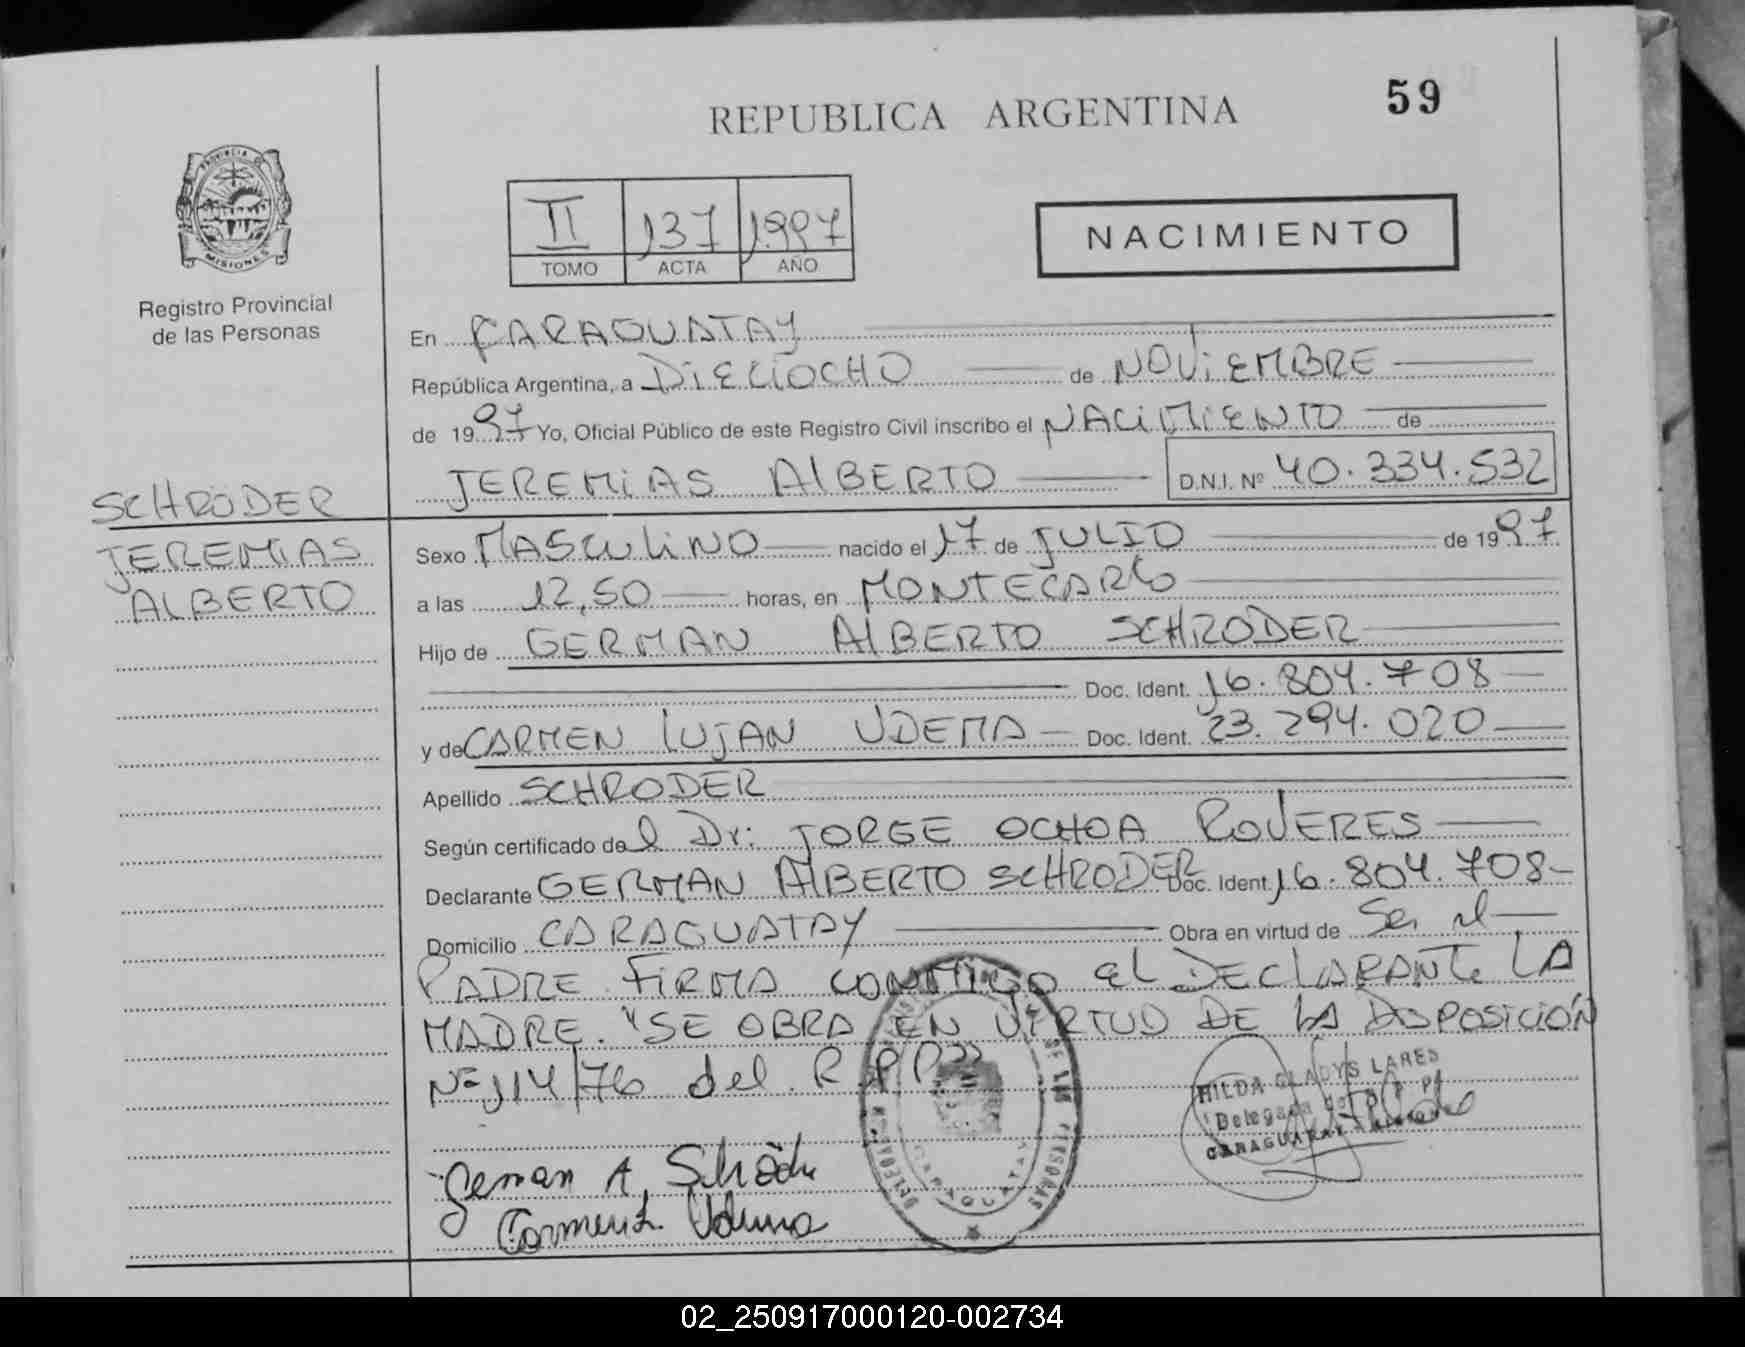 59
REPUBLICA ARGENTINA
PROVINCIA DE
MISIONES
Registro Provincial
de las Personas
II 137 1997
TOMO ACTA AÑO
NACIMIENTO
En CARAGUATAY
República Argentina, a DIECIOCHO de NOVIEMBRE
de 1997 Yo, Oficial Público de este Registro Civil inscribo el NACIMIENTO de
JEREMIAS ALBERTO D.N.I. Nº 40.334.532
SCHRODER
JEREMIAS
ALBERTO
Sexo MASCULINO nacido el 17 de JULIO de 1997
a las 12,50 horas, en MONTECARLO
Hijo de GERMAN ALBERTO SCHRODER
Doc. Ident. 16.804.708
y de CARMEN LUJAN UDEMA Doc. Ident. 23.294.020
Apellido SCHRODER
Según certificado del Dr: JORGE OCHOA ROVERES
Declarante GERMAN ALBERTO SCHRODER Doc. Ident. 16.804.708-
Domicilio CARAGUATAY Obra en virtud de Ser el
PADRE FIRMA CONMIGO EL DECLARANTE LA
MADRE. "SE OBRA EN VIRTUD DE LA DISPOSICIÓN
Nº 114/76 del R.P.P"
HILDA GLADYS LARES
Delegada del R P P
CARAGUATAY
DE LAS PERSONAS
CARAGUATAY
German A. Schröder
Carmen L. Udema
02_250917000120-002734